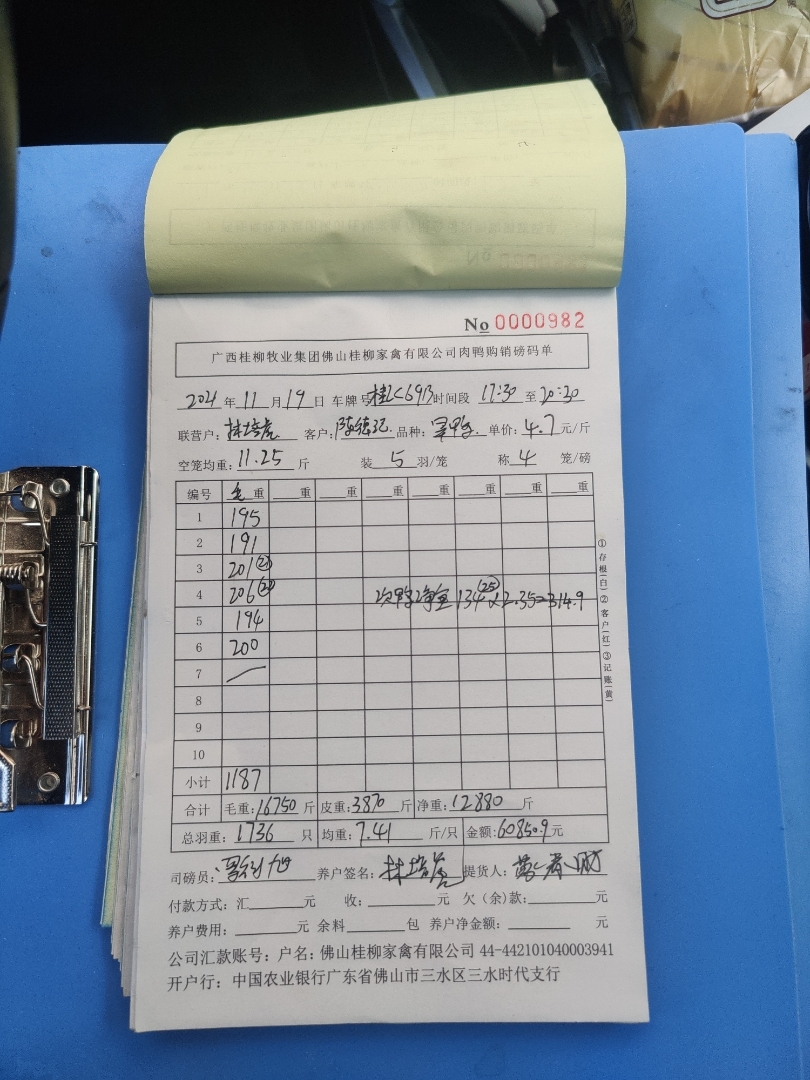 No 0000982
广西桂柳牧业集团佛山桂柳家禽有限公司肉鸭购销磅码单
2021年11月19日 车牌号 时间段 17:30 至 20:30
联营户: 林培 客户: 陈德记 品种: 鸭 单价: 4.7 元/斤
空笼均重: 11.25 斤 装 5 羽/笼 称 4 笼/磅
编号 毛重 重 重 重 重 重 重 重
1 195
2 191
3 201
4 206 次鸭净重 134 (25) x2.35=314.9
5 194
6 200
7
8
9
10
小计 1187
合计 毛重: 16750 斤 皮重: 3870 斤 净重: 12880 斤
总羽重: 1736 只 均重: 7.41 斤/只 金额: 60850.9 元
司磅员: 养户签名: 林培 提货人:
付款方式: 汇 元 收: 元 欠(余)款: 元
养户费用: 元 余料 包 养户净金额: 元
公司汇款账号: 户名: 佛山桂柳家禽有限公司 44-442101040003941
开户行: 中国农业银行广东省佛山市三水区三水时代支行
①存根(白)②客户(红)③记账(黄)